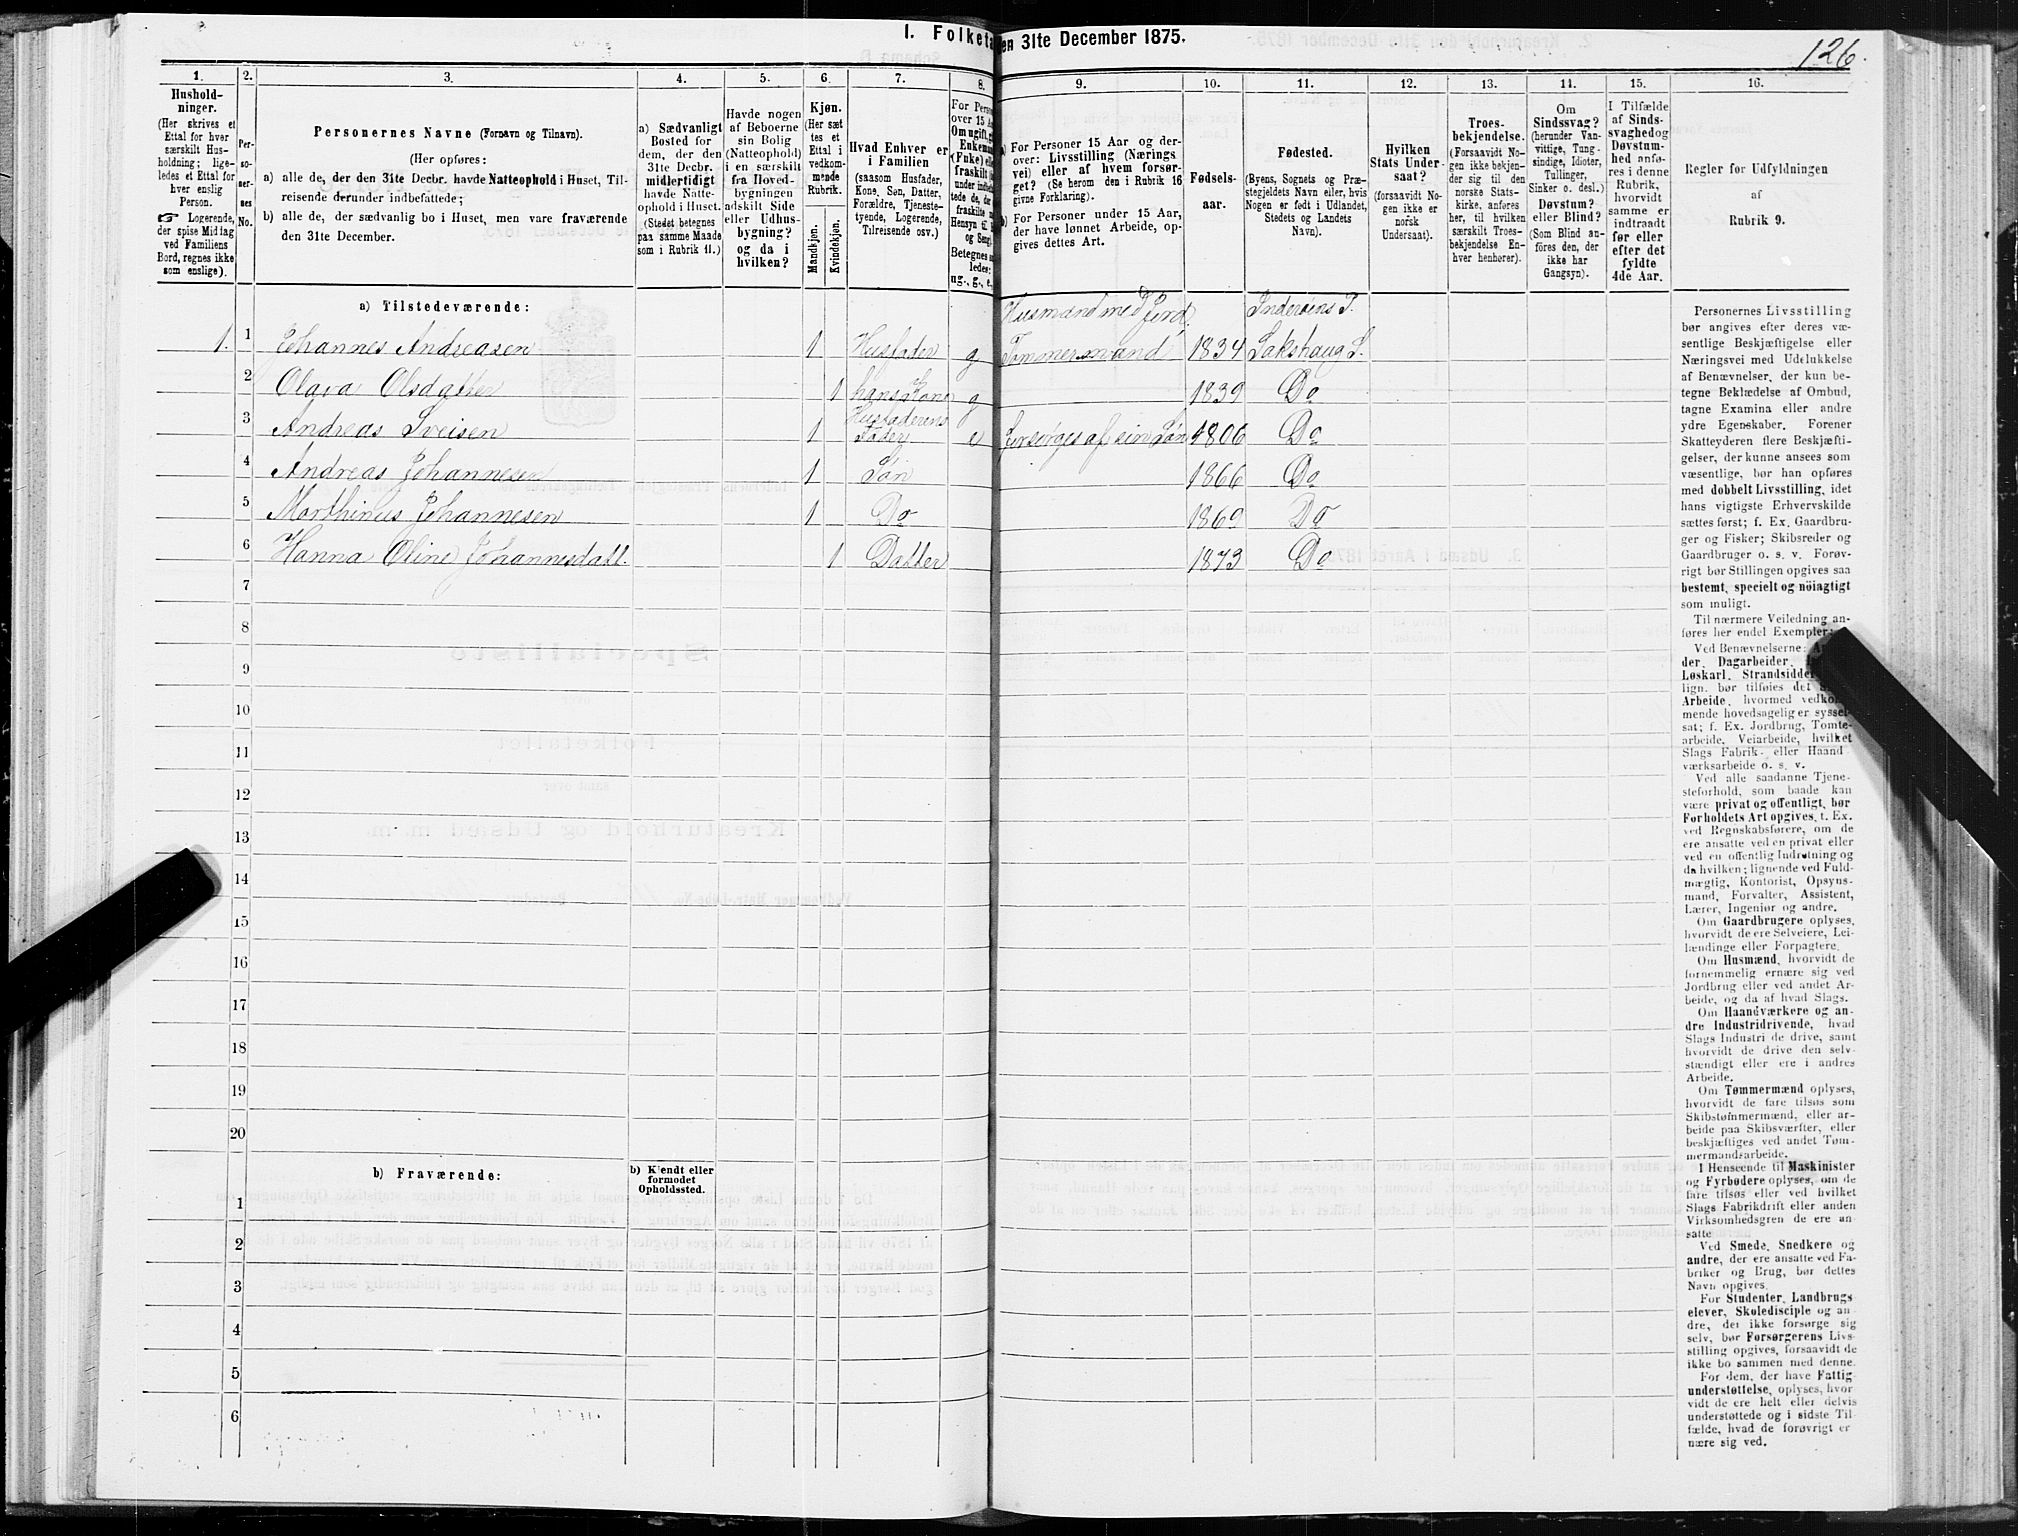 1. Folketa en 31te December 1875.
126.
1. 2. 3. 4. 5. 6. 7. 8. 9. 10. 11. 12. 13. 14. 15. 16.
Hushold-
ninger.
(Her skrives et
Ettal for hver
særskilt Hus-
holdning; lige-
ledes et Ettal for
hver enslig
Person.
☞ Logerende,
der spise Middag
ved Familiens
Bord, regnes ikke
som enslige).
Per-
so-
ner-
nes
No.
Personernes Navne (Fornavn og Tilnavn).
(Her opføres:
a) alle de, der den 31te Decbr. havde Natteophold i Huset, Til-
reisende derunder indbefattede;
b) alle de, der sædvanlig bo i Huset, men vare fraværende
den 31te December.
a) Sædvanligt
Bosted for
dem, der den
31te Decbr.
midlertidigt
havde Natte-
ophold i Huset.
(Stedet betegnes
paa samme Maade
som i Rubrik 11.)
Havde nogen
af Beboerne
sin Bolig
(Natteophold)
i en særskilt
fra Hoved-
bygningen
adskilt Side
eller Udhus-
bygning?
og da i
hvilken?
Kjøn.
(Her sæt-
tes et
Ettal i
vedkom-
mende
Rubrik.
Mandkjøn.
Kvindekjøn.
Hvad Enhver er
i Familien
(saasom Husfader,
Kone, Søn, Datter,
Forældre, Tjeneste-
tyende, Logerende,
Tilreisende osv.)
For Person
over 15 A
Om ugift, g
Enkeman
(Enke) elle
fraskilt
Hensyn til
og Seng
Betegnes
ledes:
ug., g., e.,
a) For Personer 15 Aar og der-
over: Livsstilling (Nærings
vei) eller af hvem forsør-
get? (Se herom den i Rubrik 16
givne Forklaring).
b) For Personer under 15 Aar,
der have lønnet Arbeide, op-
gives dettes Art.
Fødsels-
aar.
Fødested.
(Byens, Sognets og Præ-
stegjeldets Navn eller, hvis
Nogen er født i Udlandet,
Stedets og Landets
Navn).
Hvilken
Stats Under-
saat?
(forsaavidt No-
gen ikke er
norsk
Undersaat).
Troes-
bekjendelse.
(Forsaavidt No-
gen ikke bekjen-
der sig til den
norske Stats-
kirke, anføres
her, til hvilken
særskilt Troes-
bekjendelse En-
hver henhører).
Om
Sindssvag?
(herunder Van-
vittige, Tung-
sindige, Idioter,
Sinker o. desl.)
Døvstum?
eller Blind?
(Som Blind an-
føres den, der
ikke har
Gangsyn).
I Tilfælde
af Sinds-
svaghed og
Døvstum-
hed anfø-
res i denne
Rubrik,
hvorvidt
samme er
indtraadt
før eller
efter det
fyldte
4de Aar.
Regler for Udfyldningen
af
Rubrik 9.
a) Tilstedeværende:
Husmand med Jord. Inderøens P.
1. 1 Johannes Andreasen 1 Husfader g Tømmermand 1834 Sakshaug S.
2 Olava Olsdatter 1 hans Kone g 1839 Do
Husfaderens
3 Andreas Sveisen 1 Fader e forsørges af sin Søn 1806 Do
4 Andreas Johannesen 1 Søn 1866 Do
5 Marthinus Johannesen 1 Do 1869 Do
6 Hanna Oline Johannesdatt. 1 Datter 1873 Do
7
8
9
10
11
12
13
14
15
16
17
18
19
20
b) Fraværende:
b) Kjendt eller
formodet
Opholdssted.
1
2
3
4
5
6
Personernes Livsstilling
bør angives efter deres væ-
sentlige Beskjæftigelse eller
Næringsvei med Udelukkelse
af Benævnelser, der kun be-
tegne Beklædelse af Ombud,
tagne Examina eller andre
ydre Egenskaber. Forener
Skatteyderen flere Beskjæfti-
gelser, der kunne ansees som
væsentlige, bør han opføres
med dobbelt Livsstilling, idet
hans vigtigste Erhvervskilde
sættes først; f. Ex. Gaardbru-
ger og Fisker; Skibsreder og
Gaardbruger o. s. v. Forøv-
rigt bør Stillingen opgives saa
bestemt, specielt og nöiagtigt
som muligt.
Til nærmere Veiledning an-
føres her endel Exempler:
Ved Benævnelserne:
der, Dagarbeider,
Løskarl, Strandsidder
lign. bør tilføies det
Arbeide, hvormed vedkom-
mende hovedsagelig er syssel-
sat; f. Ex. Jordbrug, Tomte-
arbeide, Veiarbeide, hvilket
Slags Fabrik- eller Haand
værksarbeide o. s. v.
Ved alle saadanne Tjene-
steforhold, som baade kan
være privat og offentligt, bør
Forholdets Art opgives, t. Ex.
ved Regnskabsførere, om de
ere ansatte ved en privat eller
ved en offentlig Indretning og
da hvilken; lignende ved Fuld-
mægtig, Kontorist, Opsyns-
mand, Forvalter, Assistent,
Lærer, Ingeniør og andre.
Om Gaardbrugere oplyses,
hvorvidt de ere Selveiere, Lei-
lændinge eller Forpagtere.
Om Husmænd, hvorvidt de
fornemmelig ernære sig ved
Jordbrug eller ved andet Ar-
beide, og da af hvad Slags.
Om Haandværkere og an-
dre Industridrivende, hvad
Slags Industri de drive, samt
hvorvidt de drive den selv-
stændigt eller ere i andres
Arbeide.
Om Tømmermænd oplyses,
hvorvidt de fare tilsøs som
Skibstømmermænd, eller ar-
beide paa Skibsværfter, eller
beskjæftiges ved andet Tøm-
mermandsarbeide.
I Henseende til Maskinister
og Fyrbødere oplyses, om de
fare tilsøs eller ved hvilket
Slags Fabrikdrift eller anden
Virksomhedsgren de ere an-
satte
Ved Smede, Snedkere og
andre, der ere ansatte ved Fa-
briker og Brug, bør dettes
Navn opgives
For Studenter, Landbrugs
elever, Skoledisciple og an-
dre, der ikke forsørge sig
selv, bør Forsørgerens Livs-
stilling opgives, forsaavidt de
ikke bo sammen med denne.
For dem, der have Fattig
understøttelse, oplyses, hvor
vidt de ere helt eller delvis
understøttede og i sidste Til
fælde, hvad de forøvrigt er
nære sig ved.